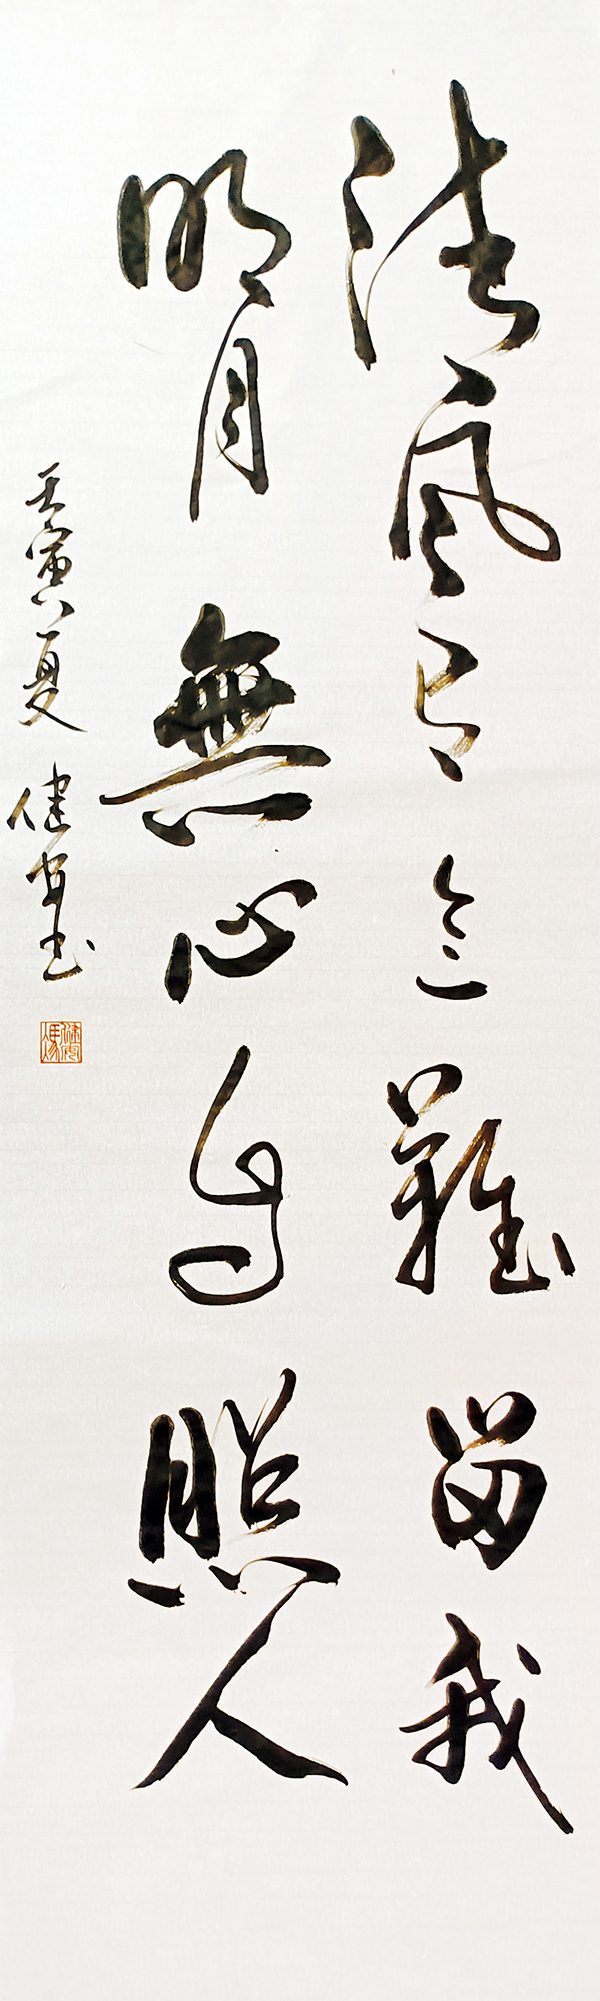 清風有意難留我
明月無心自照人
壬寅夏 健安書